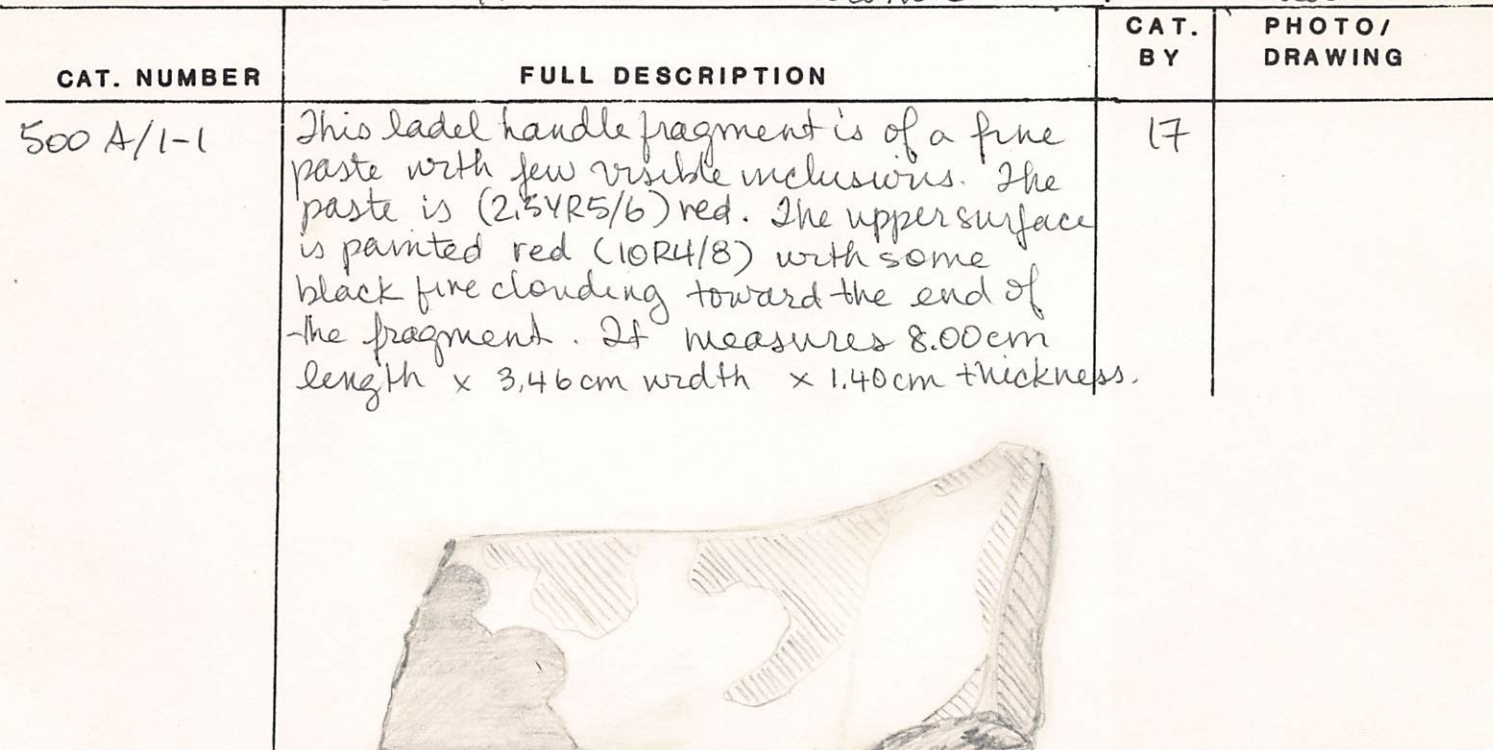 CAT. NUMBER
FULL DESCRIPTION
CAT.
BY
PHOTO/
DRAWING
500 A/1-1
This ladel handle fragment is of a fine
paste with few visible inclusions. The
paste is (2.5YR5/6) red. The upper surface
is painted red (10R4/8) with some
black fire clouding toward the end of
the fragment. It measures 8.00cm
length x 3.46cm width x 1.40cm thickness.
17